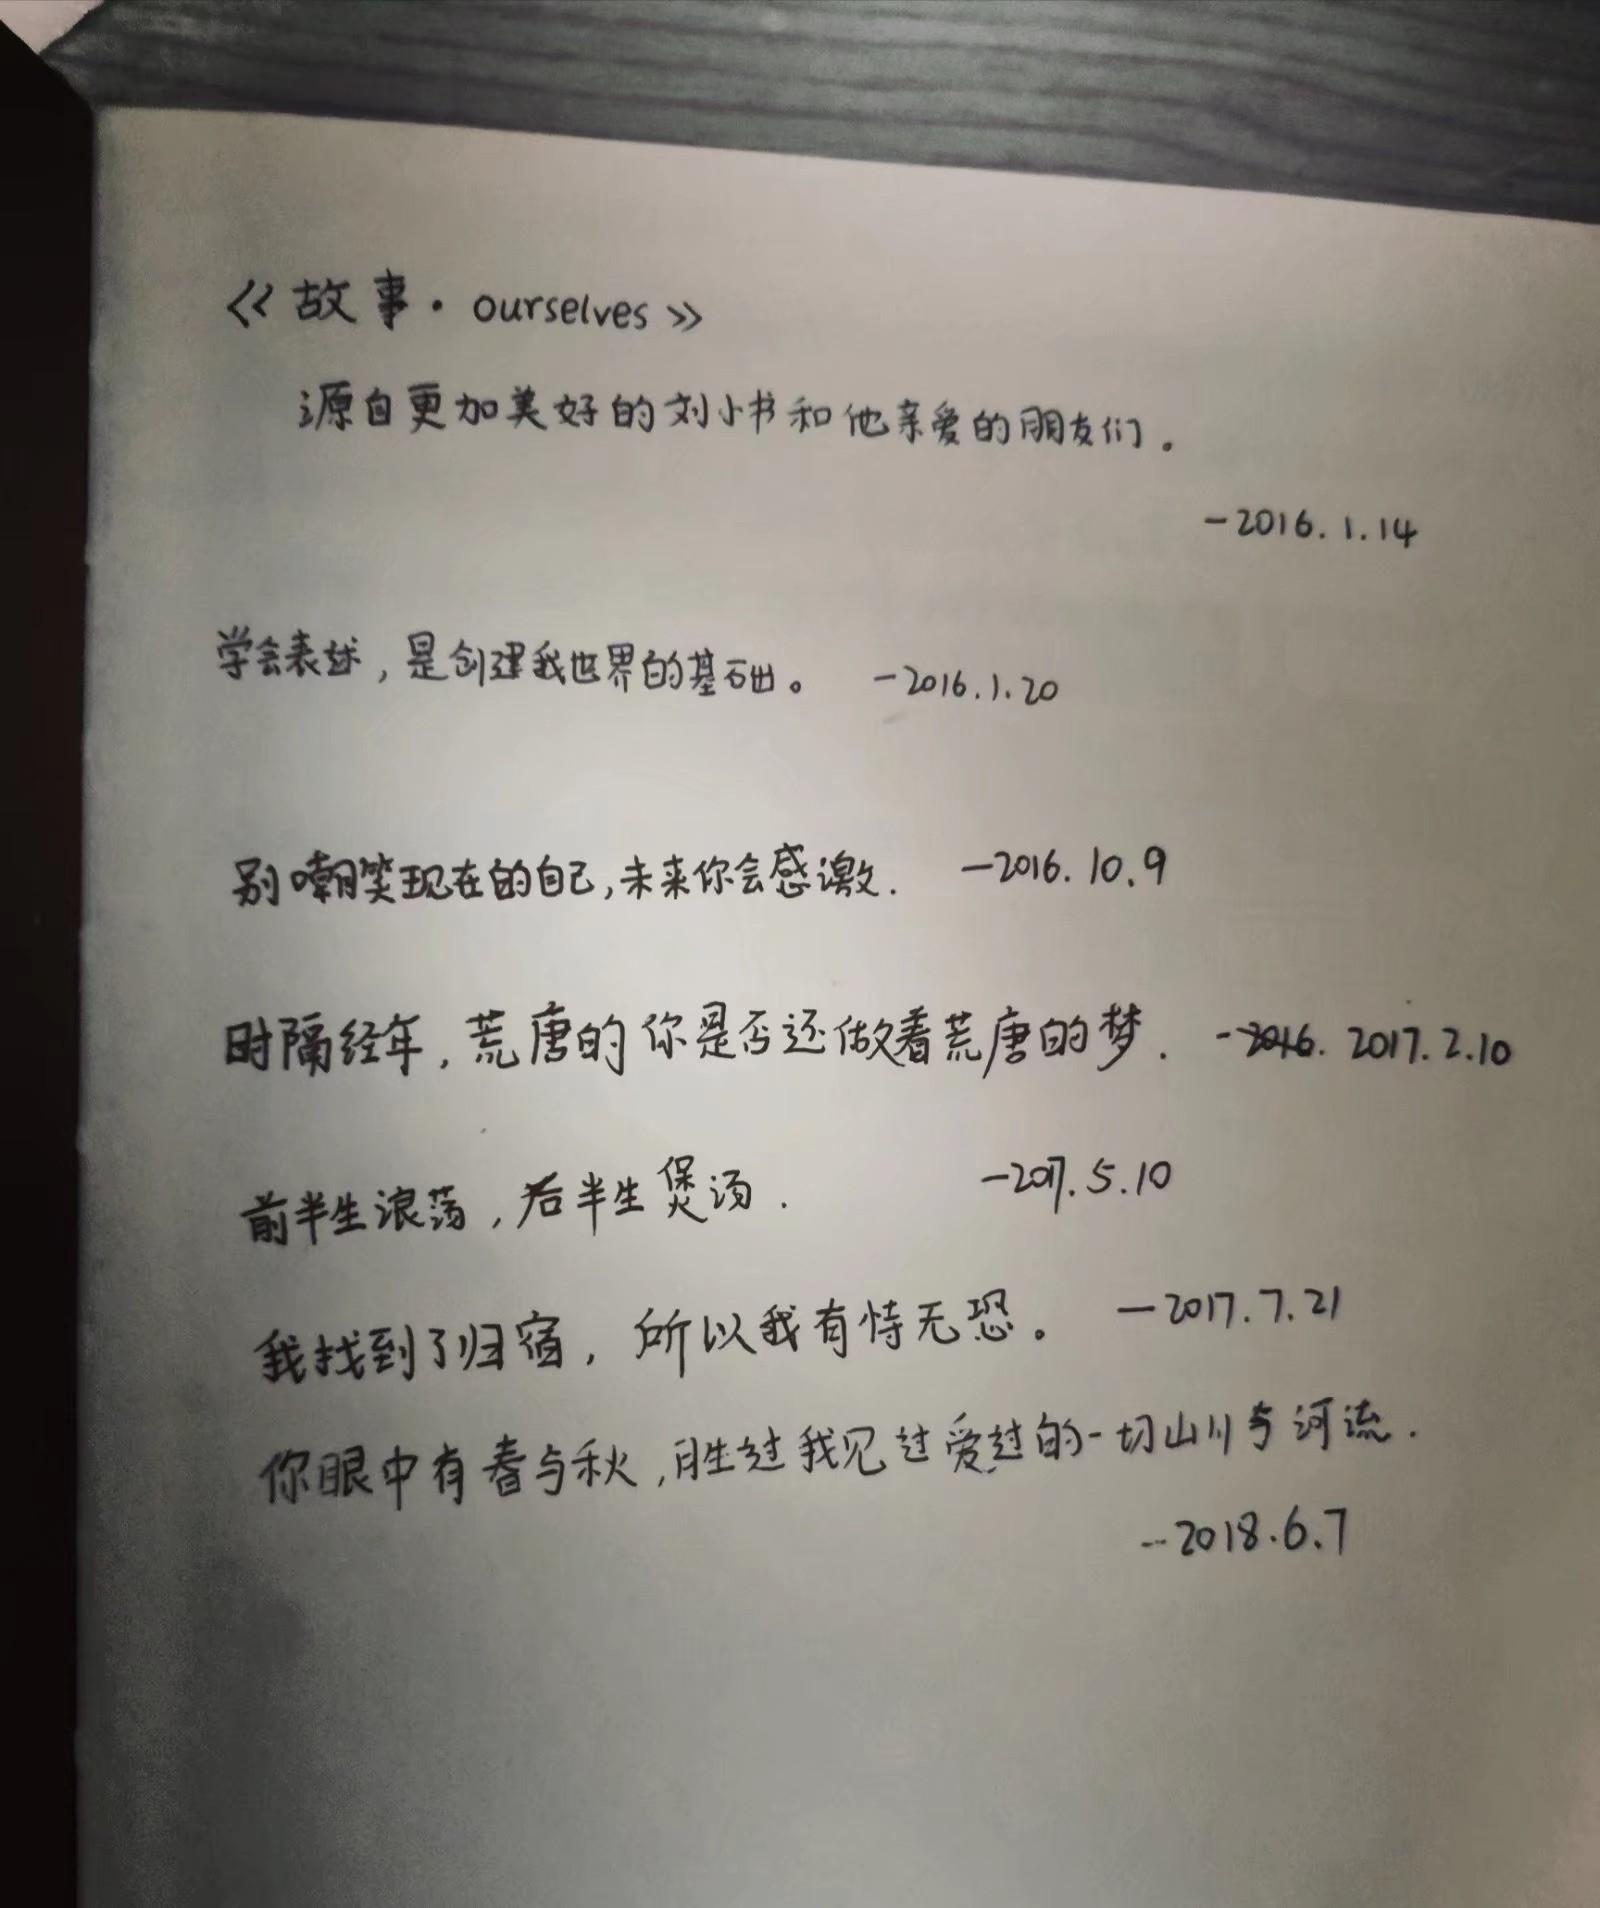 《故事·ourselves》
源自更加美好的刘小书和他亲爱的朋友们。
-2016.1.14
学会表述,是创建我世界的基础。 -2016.1.20
别嘲笑现在的自己,未来你会感激. -2016.10.9
时隔经年,荒唐的你是否还做着荒唐的梦. -2016. 2017.2.10
前半生浪荡,后半生煲汤. -2017.5.10
我找到了归宿,所以我有恃无恐。 -2017.7.21
你眼中有春与秋,胜过我见过爱过的一切山川与河流.
--2018.6.7